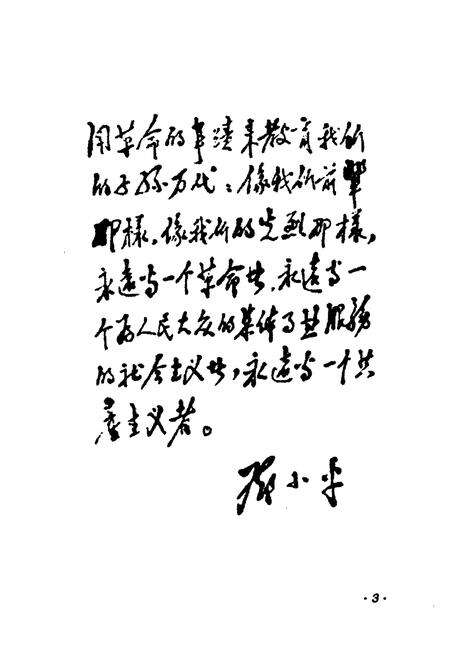 用革命的事蹟来教育我们
的子孙万代：像我们前辈
那樣，像我们的先烈那樣，
永遠当一个革命者，永遠当一
个为人民大众的集体事业服務
的社会主义者，永遠当一个共
產主义者。
邓小平
·3·